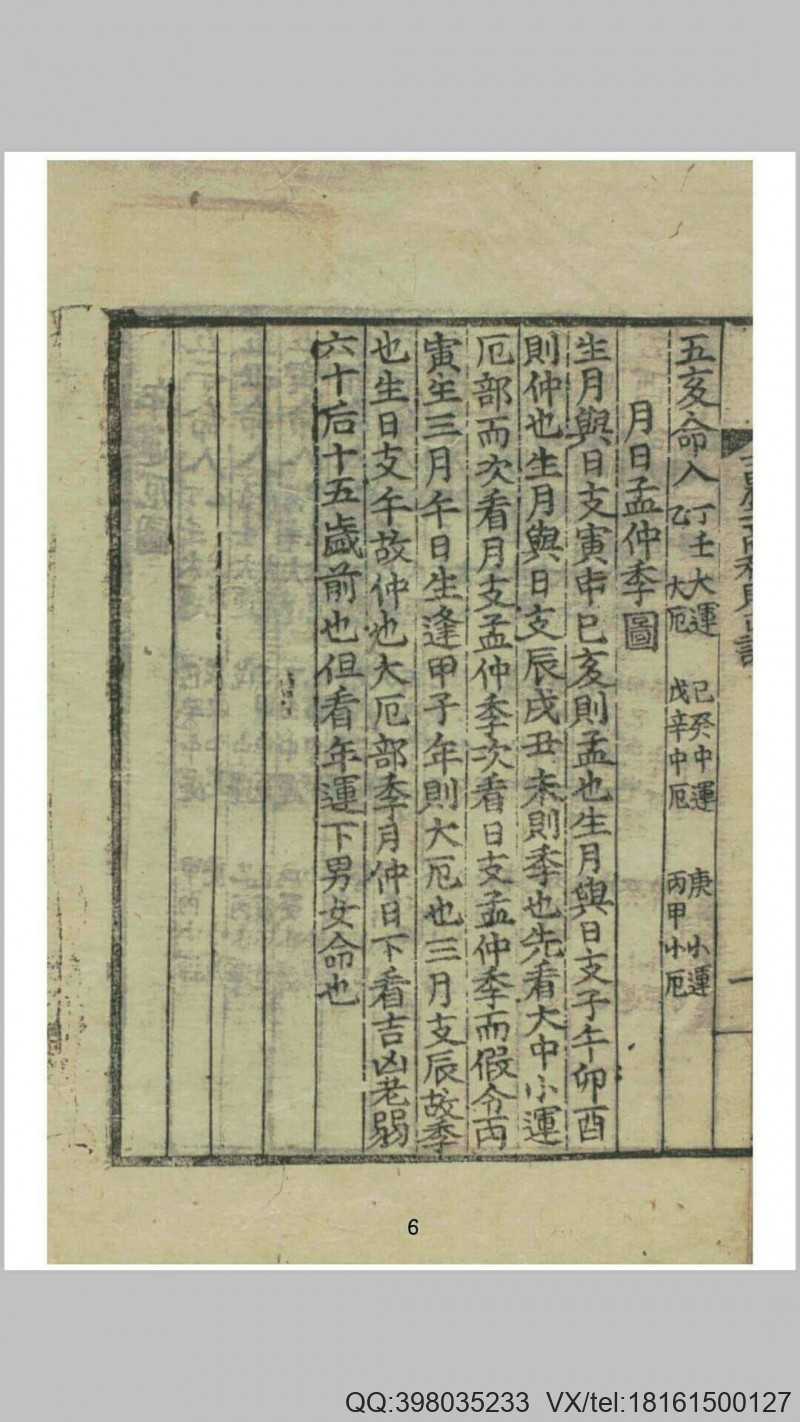 五亥命人 丁壬大運 乙 大厄 己癸中運 戊辛中厄 庚 小運 丙甲小厄
月日孟仲季圖
生月與日支寅申巳亥則孟也生月與日支子午卯酉
則仲也生月與日支辰戌丑未則季也先看大中小運
厄部而次看月支孟仲季次看日支孟仲季而假令丙
寅生三月午日生逢甲子年則大厄也三月支辰故季
也生日支午故仲也大厄部季月仲日下看吉凶老弱
六十后十五歲前也但看年運下男女命也
6
QQ:398035233 VX/tel:18161500127